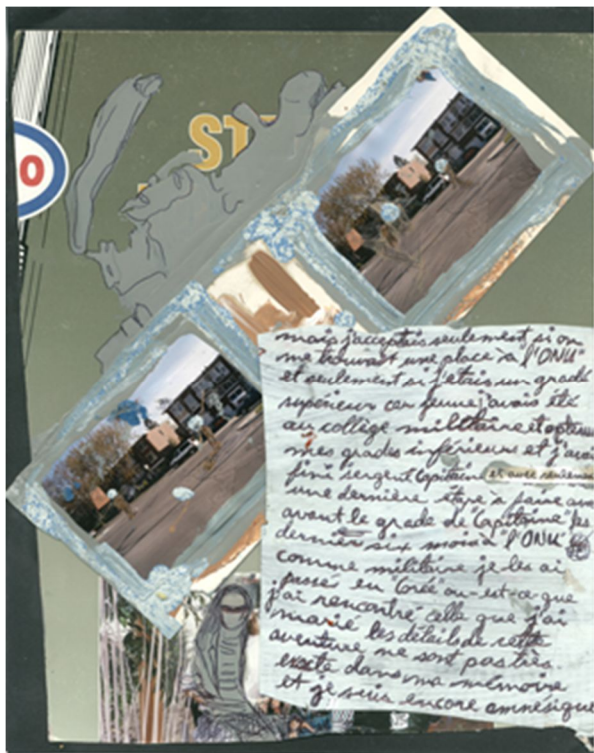 O
ST
mais j'acceptais seulement si on
me trouvait une place à l'"ONU"
et seulement si j'étais un gradé
supérieur car jeune j'avais été
au collège militaire et obtenu
mes grades inférieurs et j'avais
fini sergent Capitaine et avec seulement
une dernière étape à faire
avant le grade de "Capitaine" les
dernier six mois à l'"ONU"
comme militaire je les ai
passé en "Corée" ou-est-ce que
j'ai rencontré celle que j'ai
marié les détails de cette
aventure ne sont pas très
dans ma mémoire
et je suis encore amnésique